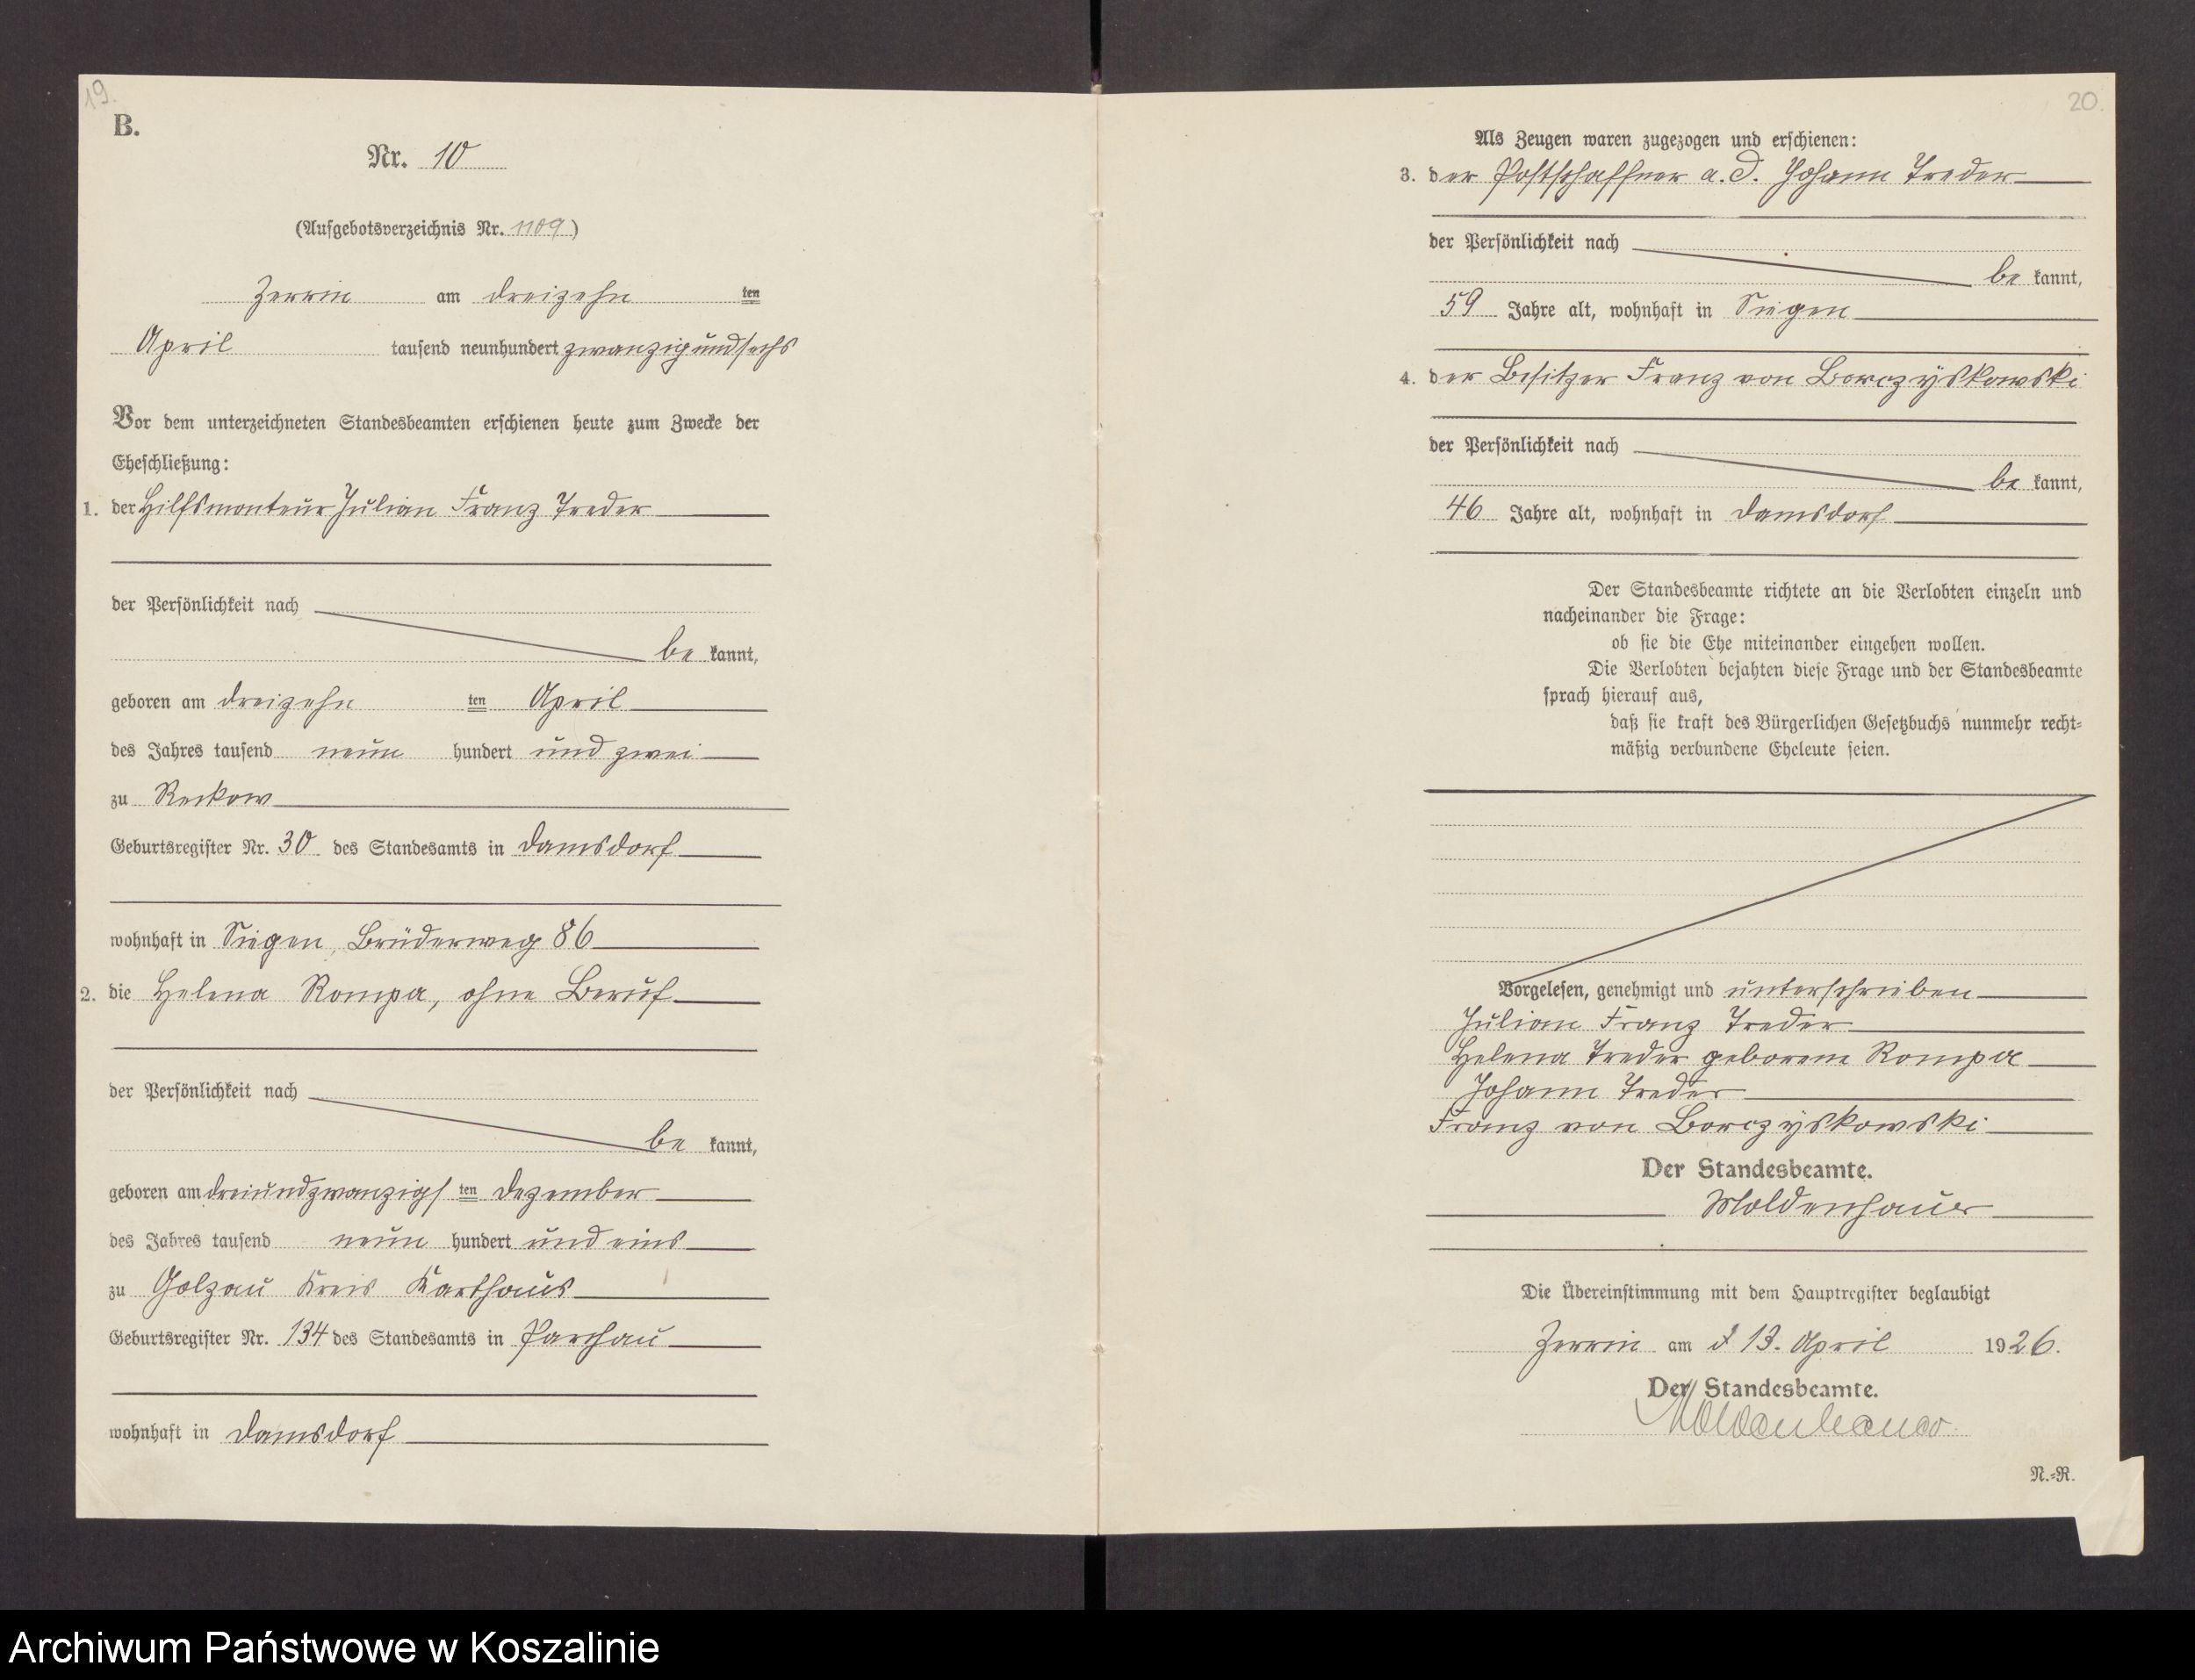 19.
B.
Nr. 10
(Aufgebotsverzeichnis Nr. 1109)
Zerrin am dreizehn ten
April tausend neunhundert zwanzigundsechs
Vor dem unterzeichneten Standesbeamten erschienen heute zum Zwecke der
Eheschließung:
1. der Hilfsmonteur Julian Franz Treder
der Persönlichkeit nach
be kannt,
geboren am dreizehn ten April
des Jahres tausend neun hundert und zwei
zu Reckow
Geburtsregister Nr. 30 des Standesamts in Damsdorf
wohnhaft in Siegen, Brüderweg 86
2. die Helena Rompa, ohne Beruf
der Persönlichkeit nach
be kannt,
geboren am dreiundzwanzigs ten Dezember
des Jahres tausend neun hundert und eins
zu Golzau Kreis Karthaus
Geburtsregister Nr. 134 des Standesamts in Parchau
wohnhaft in Damsdorf
20.
Als Zeugen waren zugezogen und erschienen:
3. der Postschaffner a.D. Johann Treder
der Persönlichkeit nach
be kannt,
59 Jahre alt, wohnhaft in Siegen
4. der Besitzer Franz von Borczyskowski
der Persönlichkeit nach
be kannt,
46 Jahre alt, wohnhaft in Damsdorf
Der Standesbeamte richtete an die Verlobten einzeln und
nacheinander die Frage:
ob sie die Ehe miteinander eingehen wollen.
Die Verlobten bejahten diese Frage und der Standesbeamte
sprach hierauf aus,
daß sie kraft des Bürgerlichen Gesetzbuchs nunmehr recht-
mäßig verbundene Eheleute seien.
Vorgelesen, genehmigt und unterschrieben
Julian Franz Treder
Helena Treder geborene Rompa
Johann Treder
Franz von Borczyskowski
Der Standesbeamte.
Moldenhauer
Die Übereinstimmung mit dem Hauptregister beglaubigt
Zerrin am d 13. April 1926.
Der Standesbeamte.
Moldenhauer
N.-R.
Archiwum Państwowe w Koszalinie